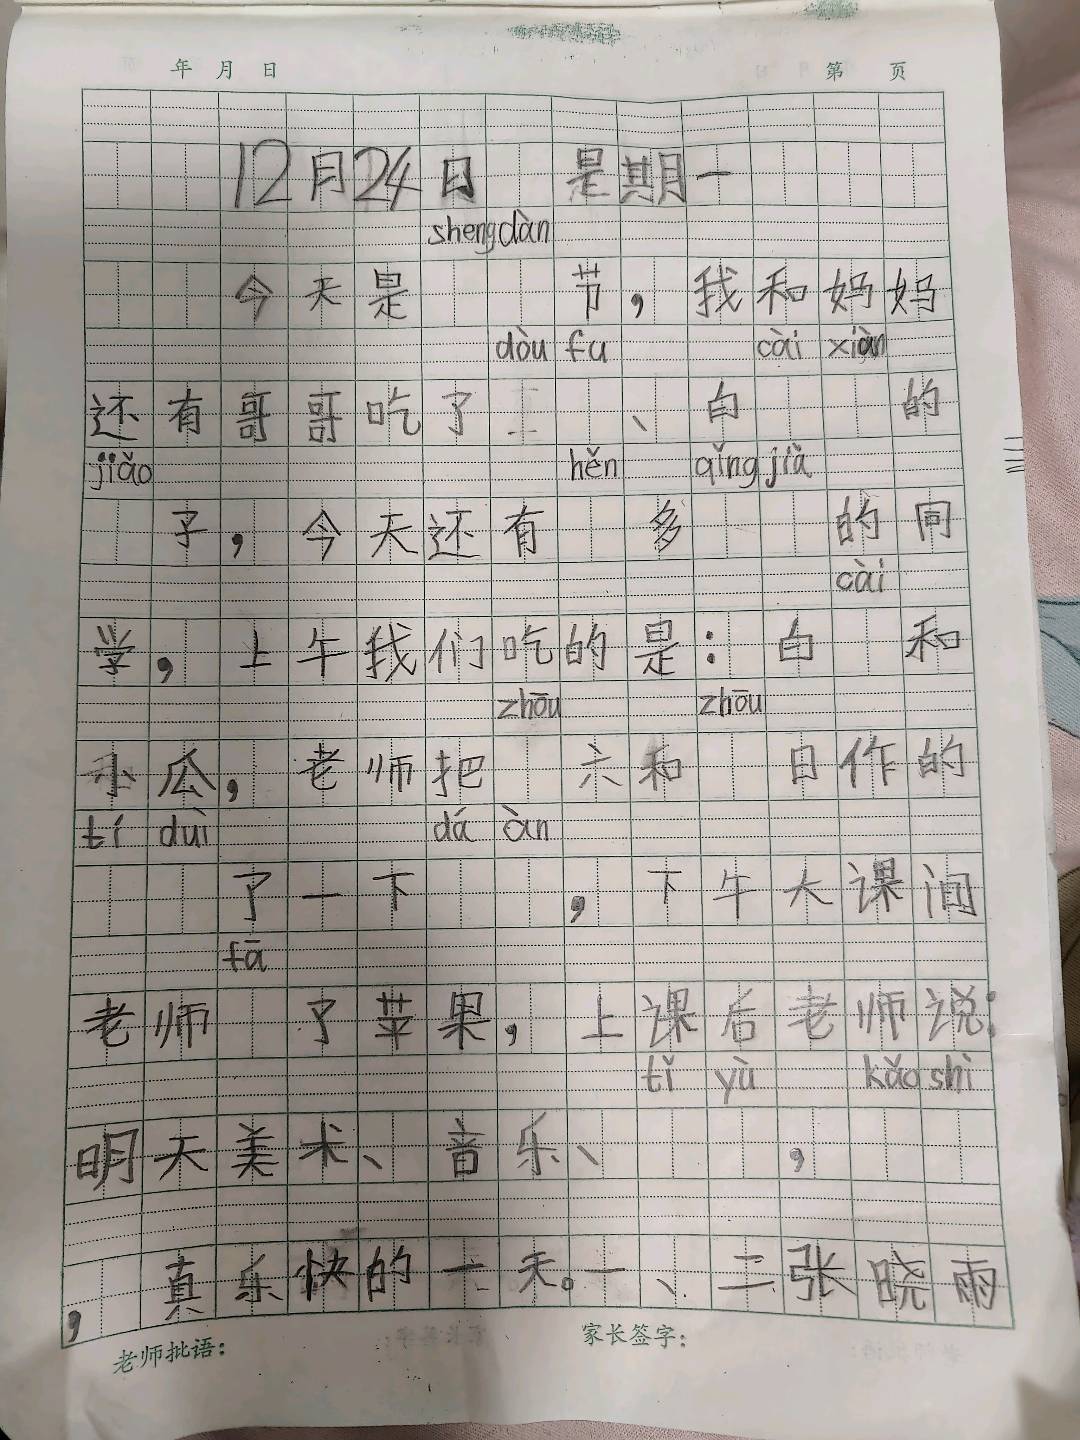 年 月 日 第 页
12月24日 是期一
shengdàn
今天是 节，我和妈妈
dòu fu cài xiàn
还有哥哥吃了 、白 的
jiǎo hěn qǐng jià
子，今天还有 多 的同
cài
学，上午我们吃的是：白 和
zhōu zhōu
小瓜，老师把 六和 日作的
tí duì dá àn
了一下 ，下午大课间
fā
老师 了苹果，上课后老师说：
tǐ yù kǎo shì
明天美术、音乐、 ，
，真乐快的一天。一、二张晓雨
老师批语： 家长签字：